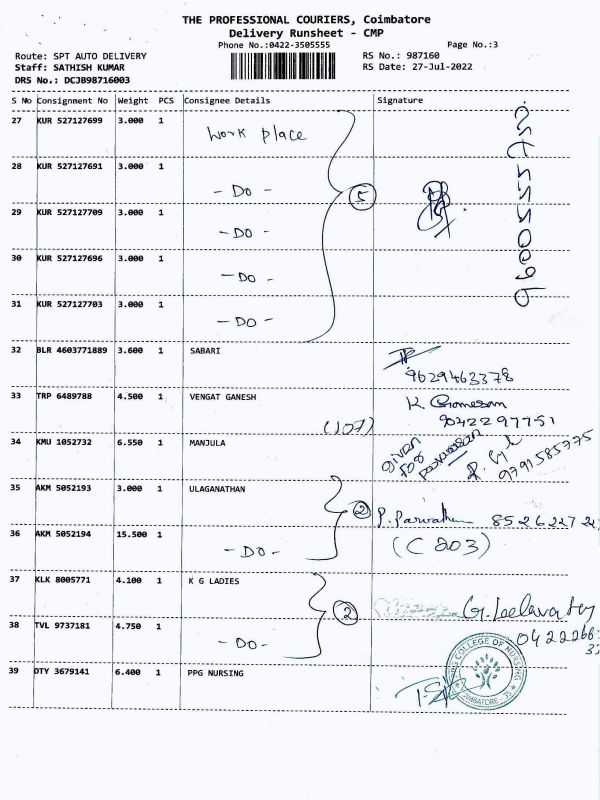 THE PROFESSIONAL COURIERS, Coimbatore
Delivery Runsheet - CMP
Phone No.:0422-3505555
Page No.:3
Route: SPT AUTO DELIVERY
RS No.: 987160
Staff: SATHISH KUMAR
RS Date: 27-Jul-2022
DRS No.: DCJB98716003
S No Consignment No Weight PCS Consignee Details Signature
27 KUR 527127699 3.000 1 Work place
28 KUR 527127691 3.000 1 - Do -
29 KUR 527127709 3.000 1 - Do -
5
30 KUR 527127696 3.000 1 - Do -
31 KUR 527127703 3.000 1 - Do -
32 BLR 4603771889 3.600 1 SABARI
9629463378
33 TRP 6489788 4.500 1 VENGAT GANESH
(107)
9042297751
34 KMU 1052732 6.550 1 MANJULA
given for
9791585775
35 AKM 5052193 3.000 1 ULAGANATHAN
2
36 AKM 5052194 15.500 1 - Do -
(C 203)
37 KLK 8005771 4.100 1 K G LADIES
2
38 TVL 9737181 4.750 1 - Do -
39 DTY 3679141 6.400 1 PPG NURSING
PPG COLLEGE OF NURSING
COIMBATORE - 35